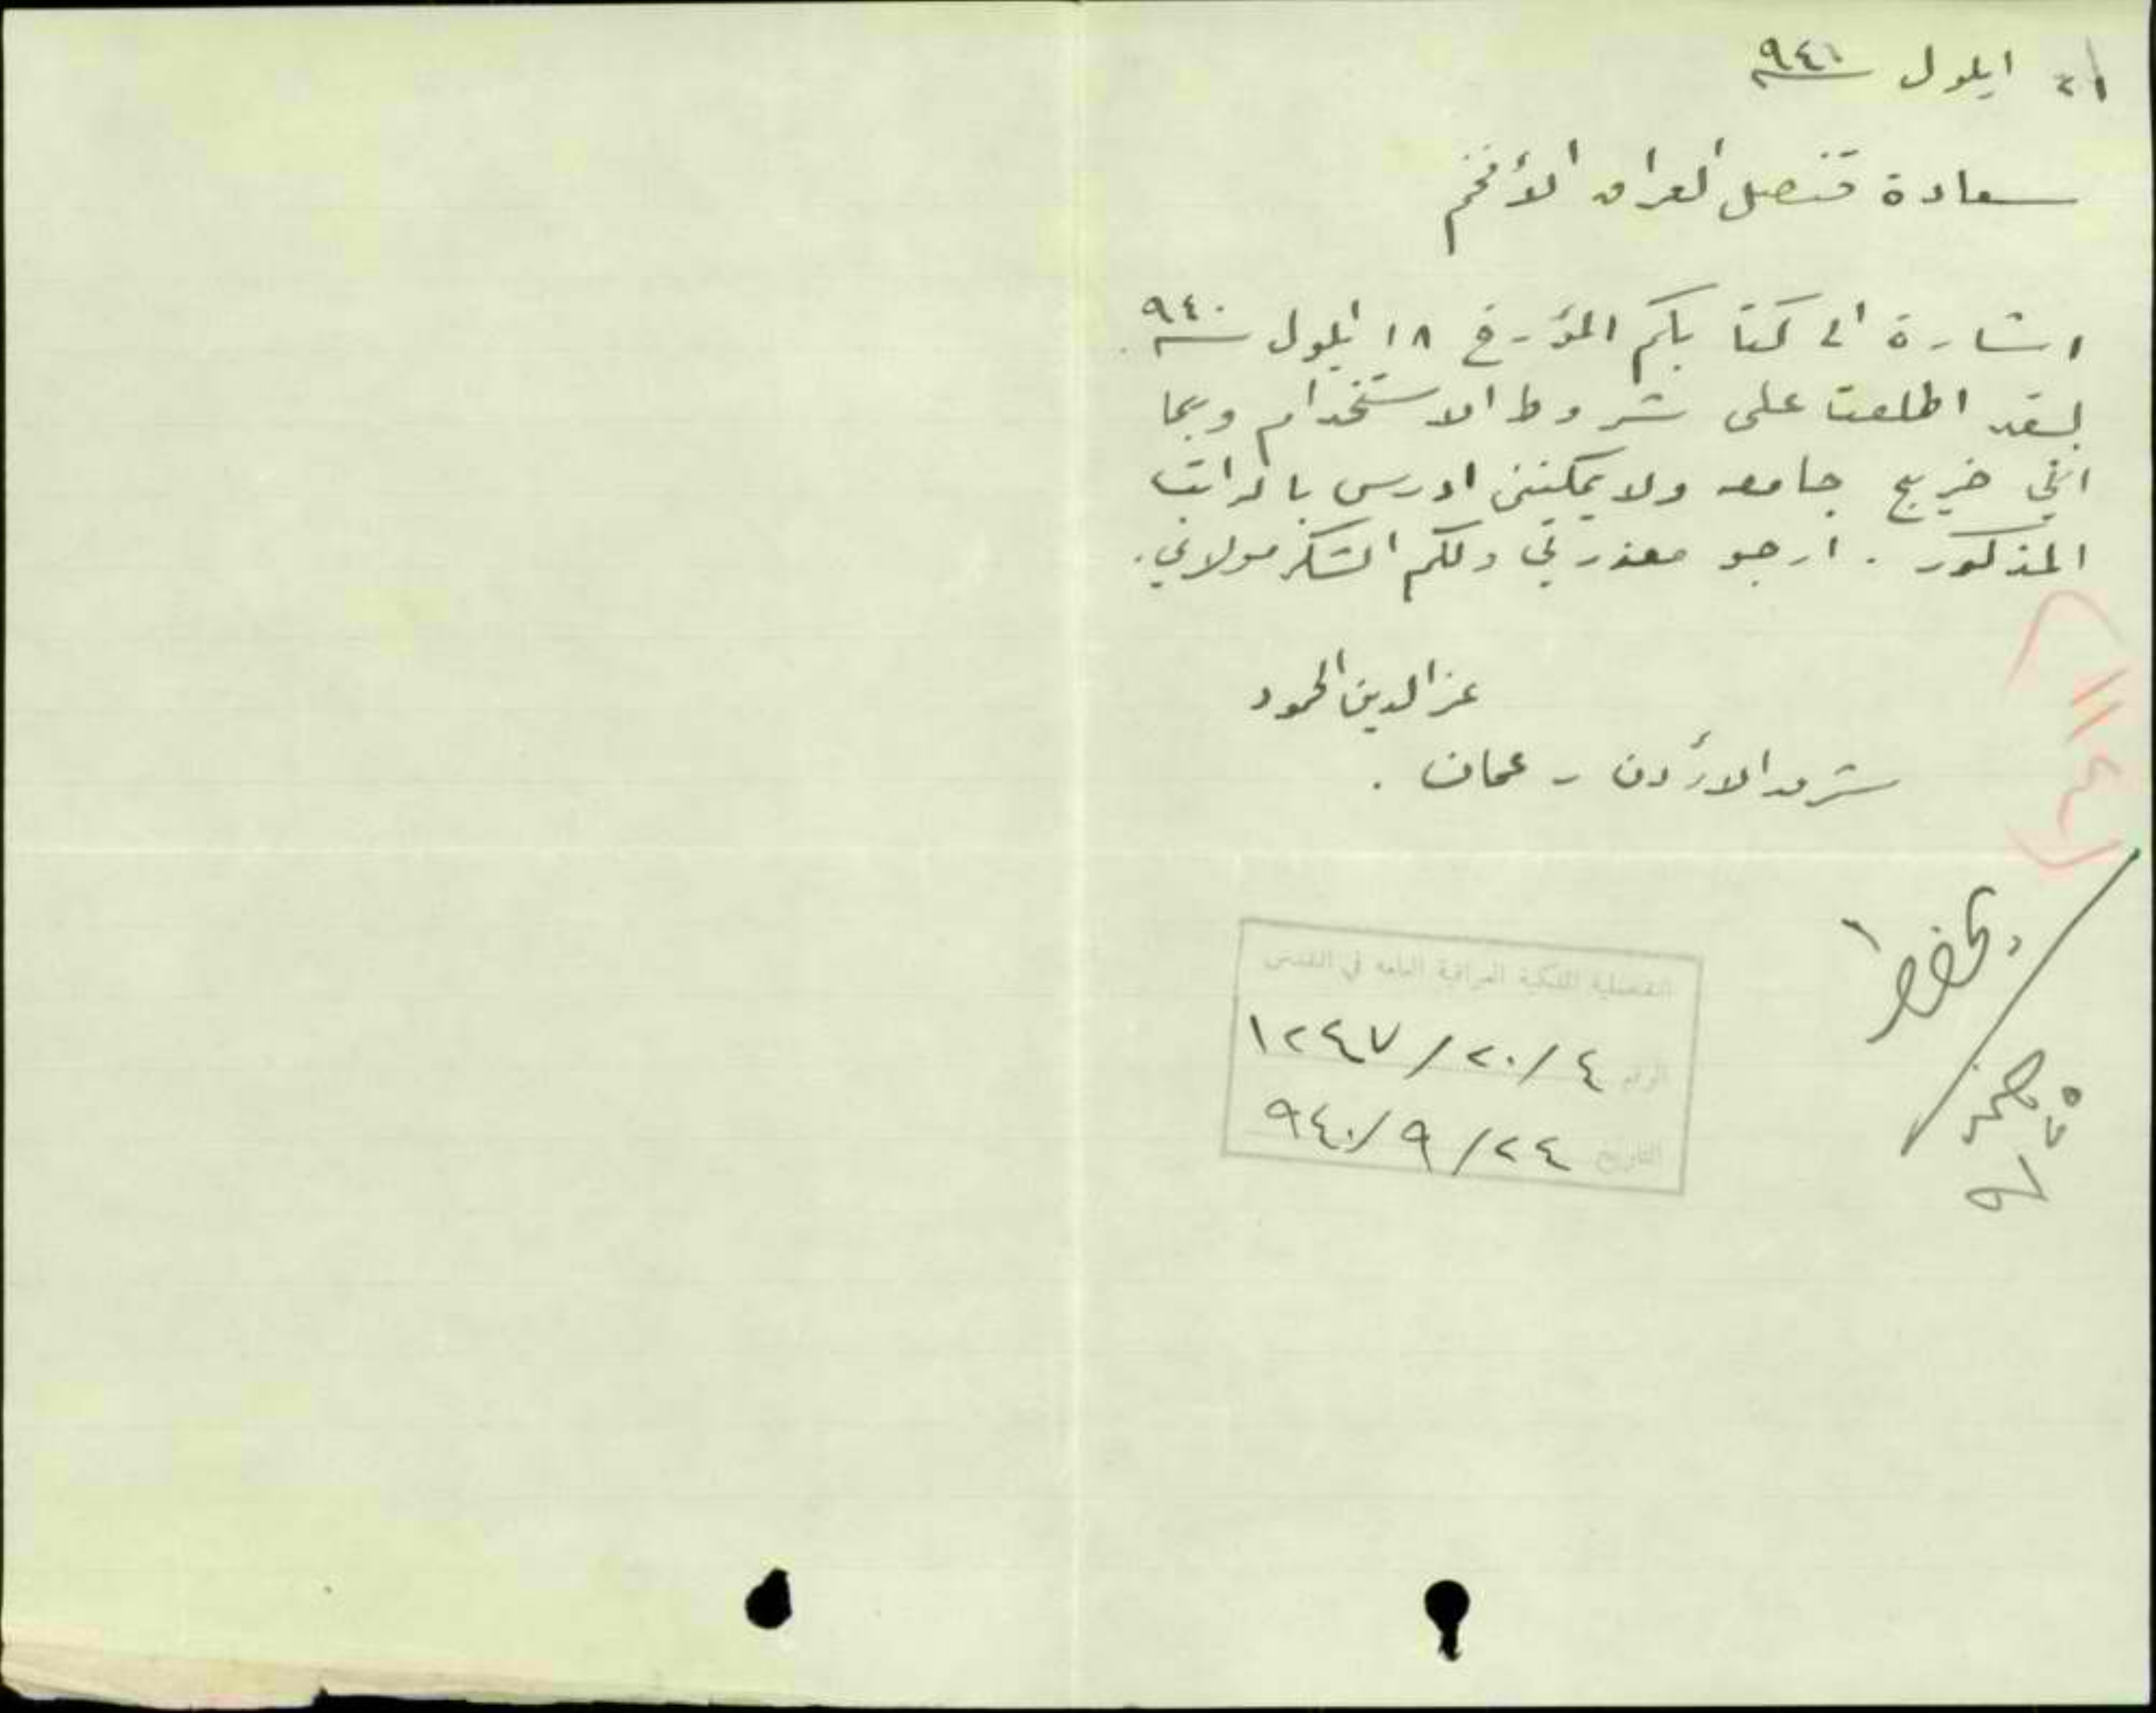 ٢١ ايلول ٩٤٠
سعادة قنصل العراق الأفخم
اشارة الى كتابكم المؤرخ ١٨ ايلول ٩٤٠
لقد اطلعت على شروط الاستخدام وبما
اني خريج جامعه ولا يمكنني ادرس بالراتب
المذكور . ارجو معذرتي ولكم الشكر مولاي .
عز الدين الحمود
شرق الأردن - عمان .
القنصلية الملكية العراقية العامه في القدس
الرقم ٤/٢٠/١٢٤٧
التاريخ ٢٤/٩/٩٤٠
يحفظ